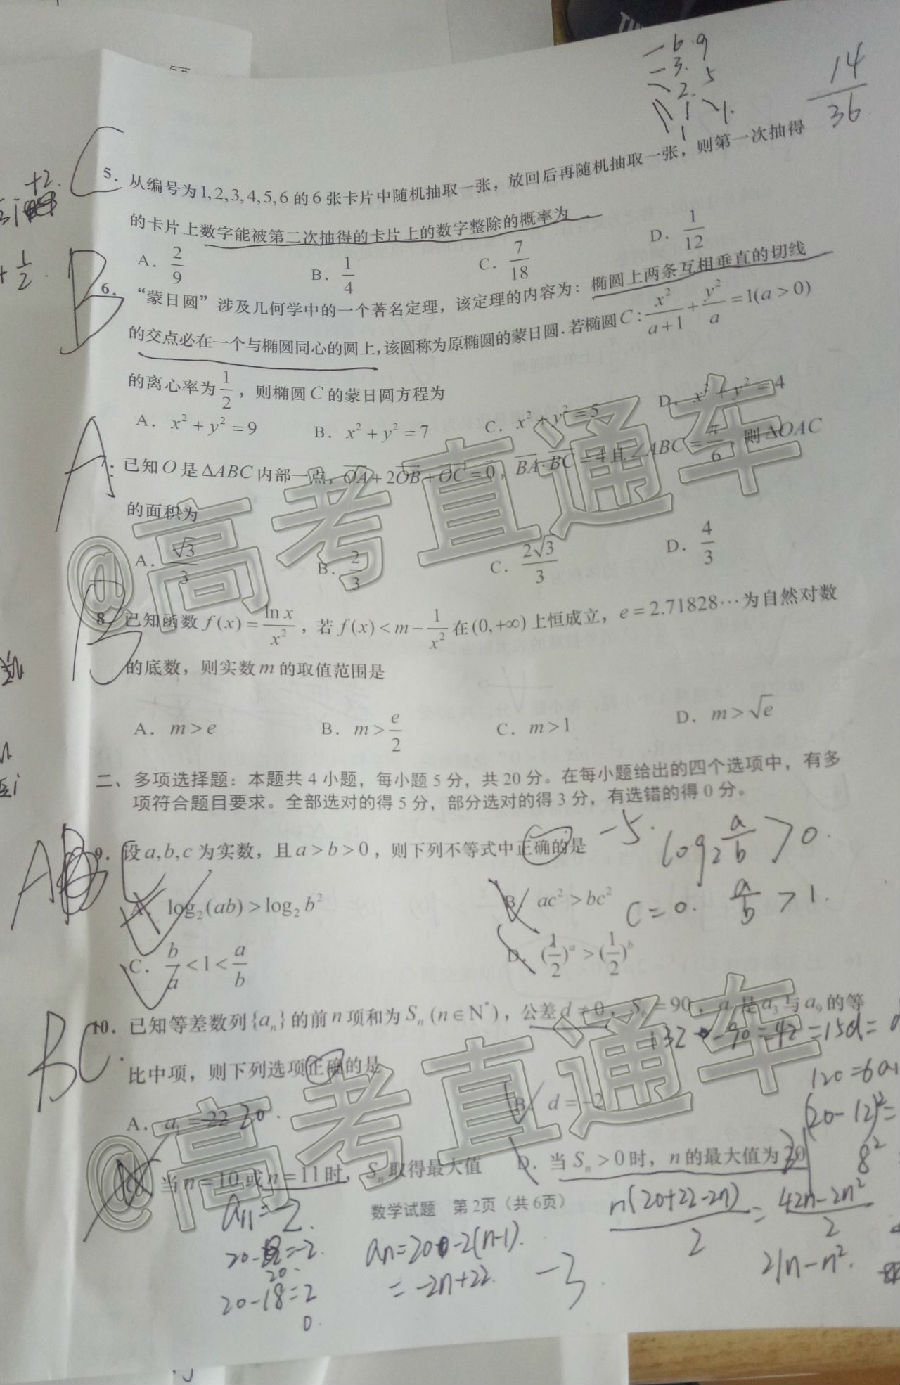 -6.9
-3.
2.5
1
1.
1
14
36
C
+2.
5. 从编号为1,2,3,4,5,6的6张卡片中随机抽取一张，放回后再随机抽取一张，则第一次抽得
的卡片上数字能被第二次抽得的卡片上的数字整除的概率为
A. 2/9 B. 1/4 C. 7/18 D. 1/12
+ 1/2
B
6. “蒙日圆”涉及几何学中的一个著名定理，该定理的内容为：椭圆上两条互相垂直的切线
的交点必在一个与椭圆同心的圆上，该圆称为原椭圆的蒙日圆.若椭圆C：x²/(a+1)+y²/a=1(a>0)
的离心率为1/2，则椭圆C的蒙日圆方程为
A. x²+y²=9 B. x²+y²=7 C. x²+y²=5 D. x²+y²=4
A
已知O是△ABC内部一点，OA+2OB+OC=0，BA·BC=4且∠ABC=π/6，则△OAC
的面积为
A. √3/3 B. 2/3 C. 2√3/3 D. 4/3
@高考直通车
B
8. 已知函数f(x)=ln x/x²，若f(x)<m-1/x²在(0,+∞)上恒成立，e=2.71828…为自然对数
的底数，则实数m的取值范围是
A. m>e B. m>e/2 C. m>1 D. m>√e
二、多项选择题：本题共4小题，每小题5分，共20分。在每小题给出的四个选项中，有多
项符合题目要求。全部选对的得5分，部分选对的得3分，有选错的得0分。
A
9. 设a,b,c为实数，且a>b>0，则下列不等式中正确的是
-5.
log₂ a/b >0.
A. log₂(ab)>log₂b² B. ac²>bc²
C=0. a/b >1.
C. b/a<1<a/b D. (1/2)^a>(1/2)^b
BC
10. 已知等差数列{aₙ}的前n项和为Sₙ(n∈N*)，公差d≠0，S =90，a 是a₃与a₉的等
132-90=42=15d=
比中项，则下列选项正确的是
120=6a₁
A. a₁=22 20 B. d=-2
(20-12)²=
8²
C. 当n=10或n=11时，Sₙ取得最大值 D. 当Sₙ>0时，n的最大值为20
@高考直通车
数学试题 第2页（共6页）
a₁₁=2.
20- =-2.
20.
20-18=2
0.
aₙ=20-2(n-1).
=-2n+22
-3
n(20+22-2n)/2=(42n-2n²)/2
21n-n².